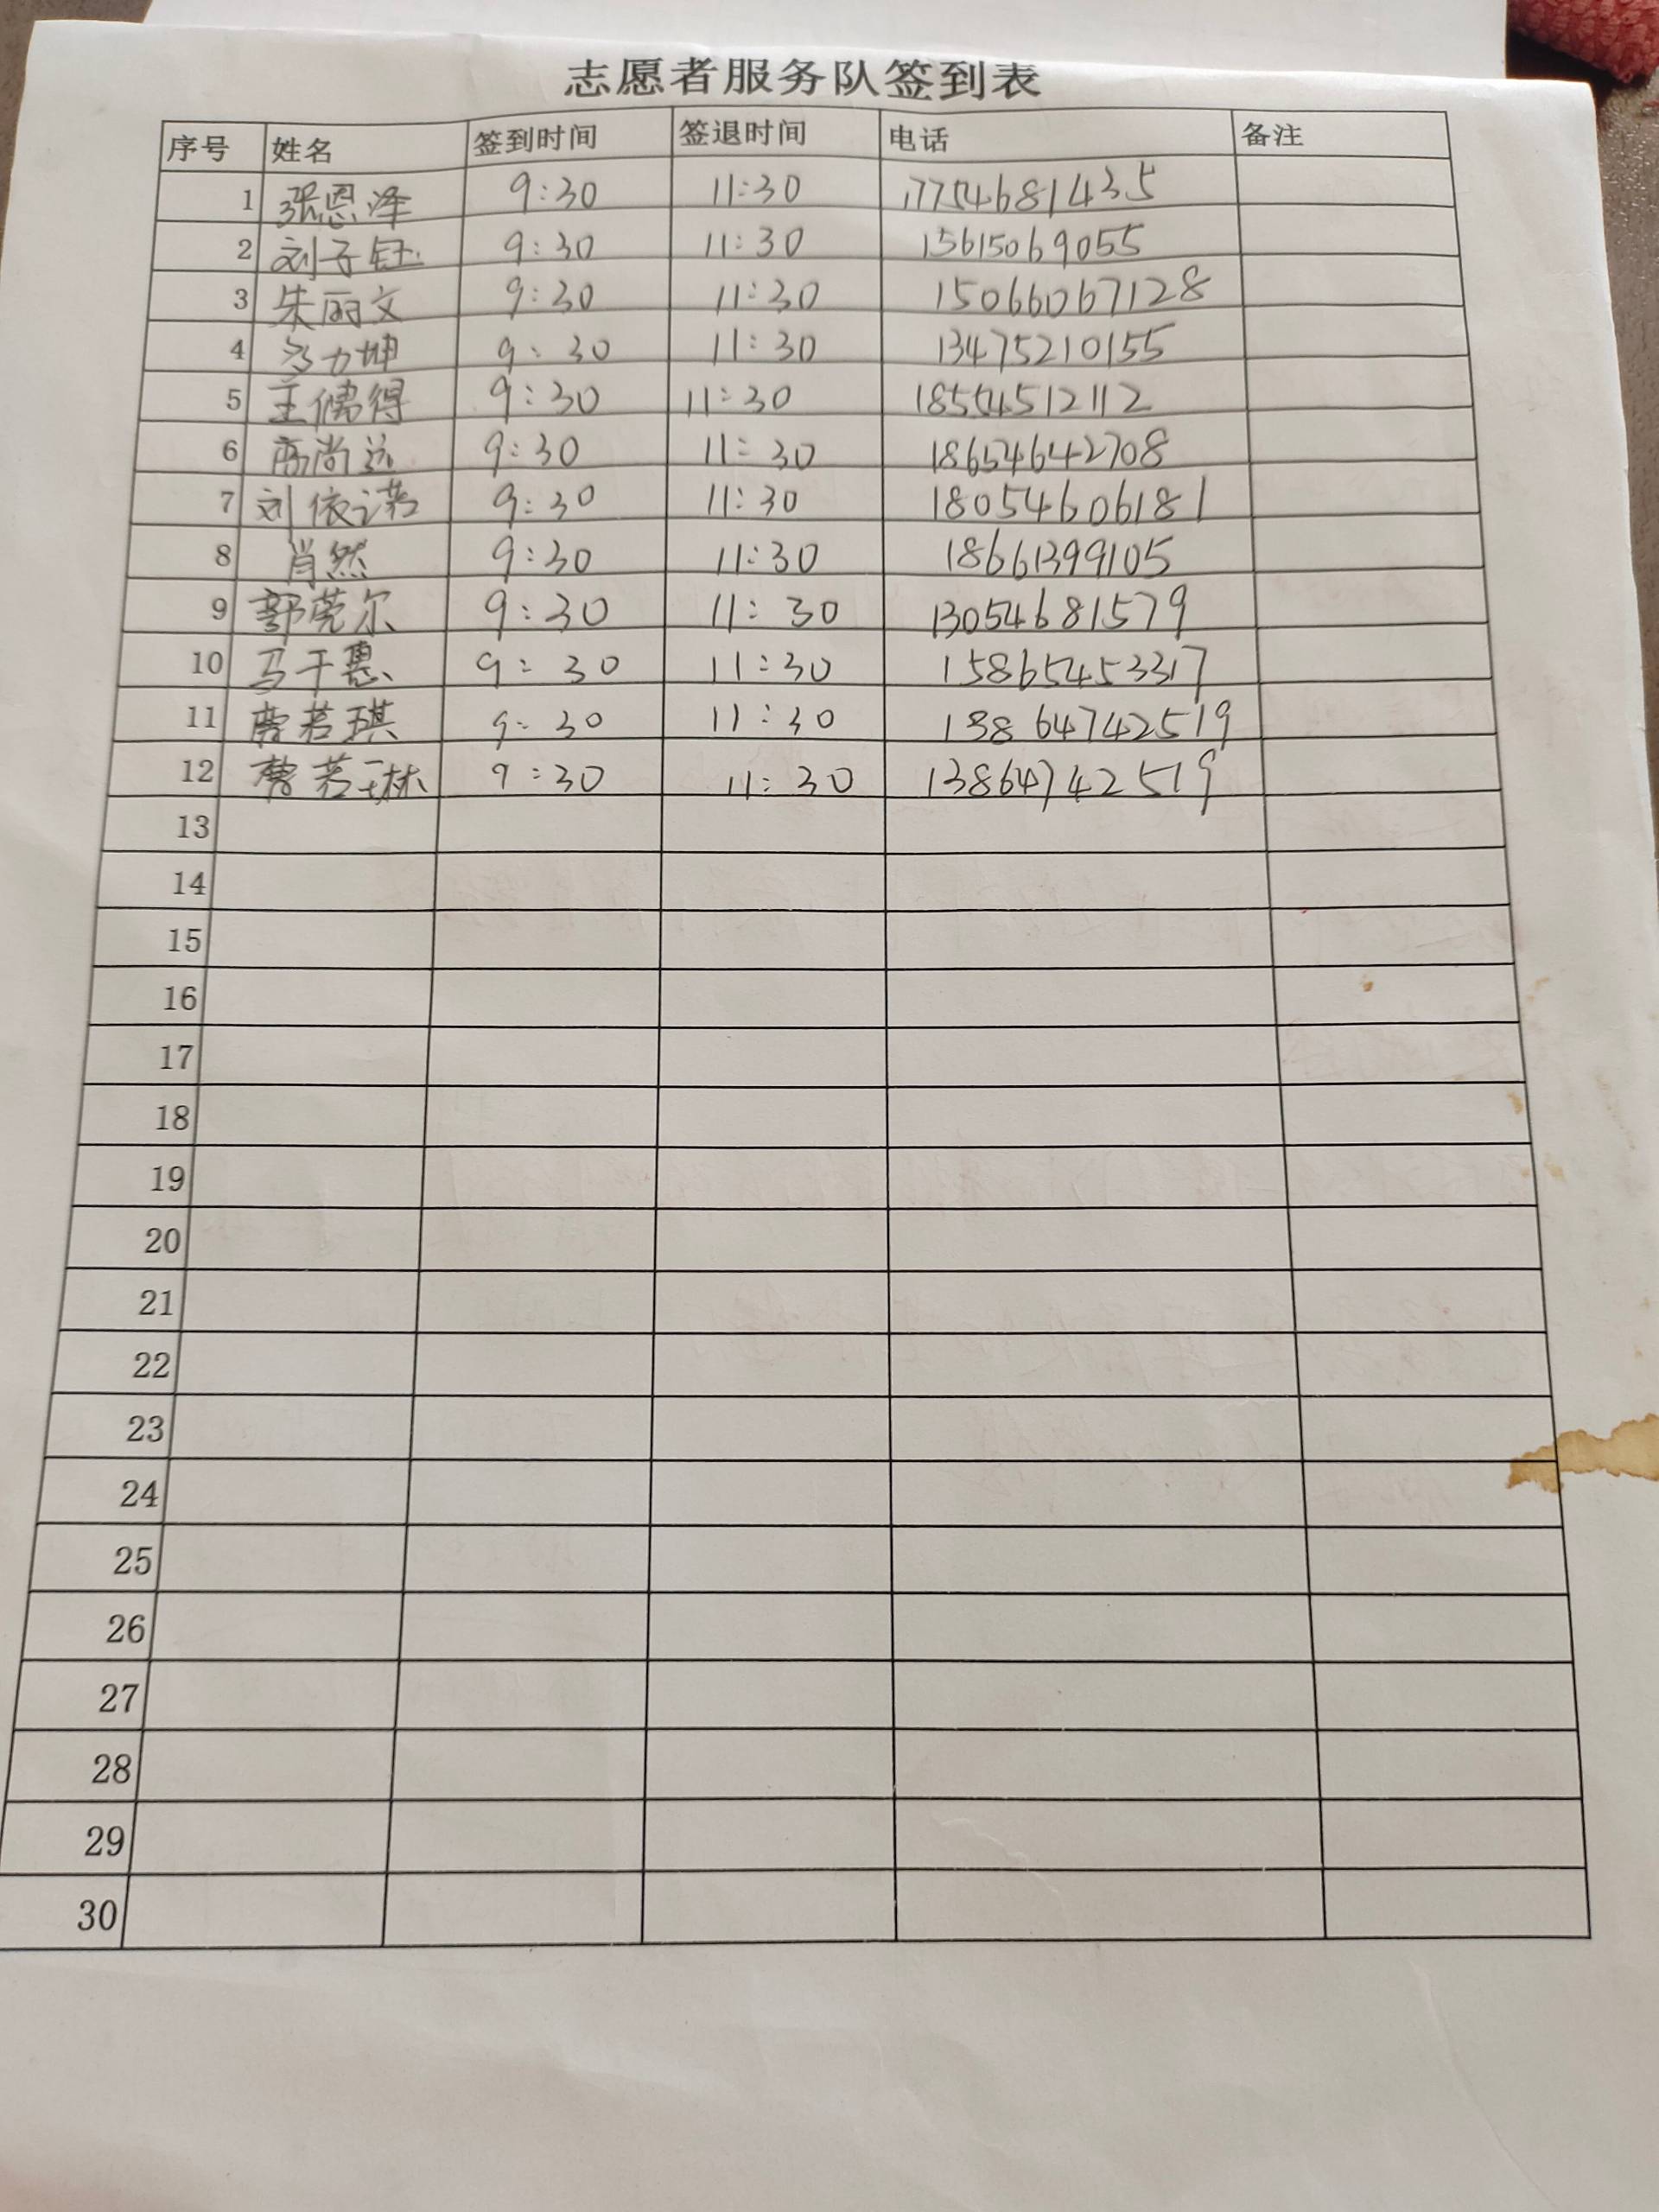 志愿者服务队签到表
序号 姓名 签到时间 签退时间 电话 备注
1 张恩泽 9:30 11:30 17754681435
2 刘子钰 9:30 11:30 15615069055
3 朱丽文 9:30 11:30 15066067128
4 9:30 11:30 13475210155
5 王儒得 9:30 11:30 18554512112
6 尚远 9:30 11:30 18654642708
7 刘依诺 9:30 11:30 18054606181
8 肖然 9:30 11:30 18661399105
9 郭莞尔 9:30 11:30 13054681579
10 马千惠 9:30 11:30 15865453317
11 曹若琪 9:30 11:30 13864742519
12 曹若琳 9:30 11:30 13864742519
13
14
15
16
17
18
19
20
21
22
23
24
25
26
27
28
29
30